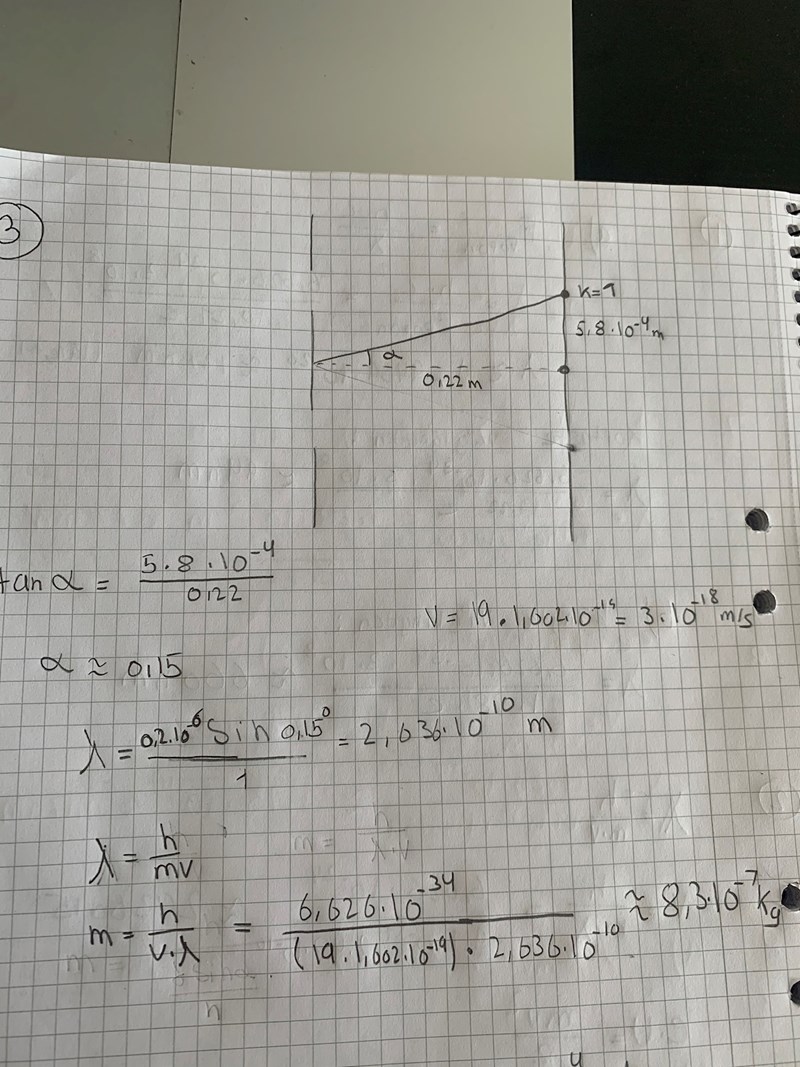 3
k=1
5,8·10⁻⁴m
α
0,22m
tan α = 5.8·10⁻⁴ / 0,22
v = 19·1,602·10⁻¹⁹ = 3·10⁻¹⁸ m/s
α ≈ 0,15
λ = 0,2·10⁻⁶ Sin 0,15° / 1 = 2,636·10⁻¹⁰ m
λ = h / mv
m = h / v·λ = 6,626·10⁻³⁴ / (19·1,602·10⁻¹⁹)·2,636·10⁻¹⁰ ≈ 8,3·10⁻⁷ kg